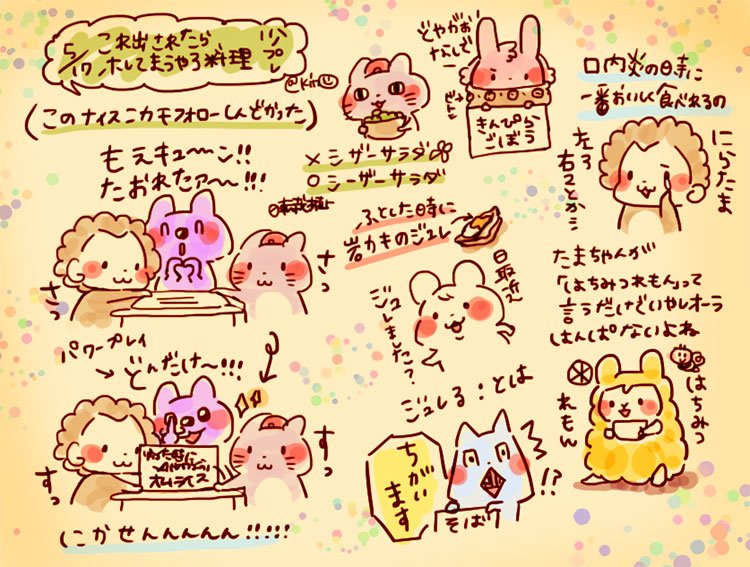 5/17
これ出されたら
ホレてまうやろ料理
リプレ
@kiri
(このナイスニカモフォローしんどかった)
もえキューーン!!
たおれたァ〜!!!
さっ
さっ
パワープレイ
→どんだけ〜!!!
すっ
すっ
オムライス
にかせんんんんん!!!!!
×シザーサラダ
○シーザーサラダ
どやがお
なしで
ビシッ
きんぴら
ごぼう
ふとした日時に
岩カキのジュレ
日取近?
ジュレしました?
ジュレる:とは
ちがい
ます
そばつ
!?
口内炎の日時に
一番おいしく食べれるの
にらたま
左ろ
右ことか…
たまちゃんが
「はちみつれもん」って
言うだけでいやしオーラ
はんぱないよね
はちみつ
れもん